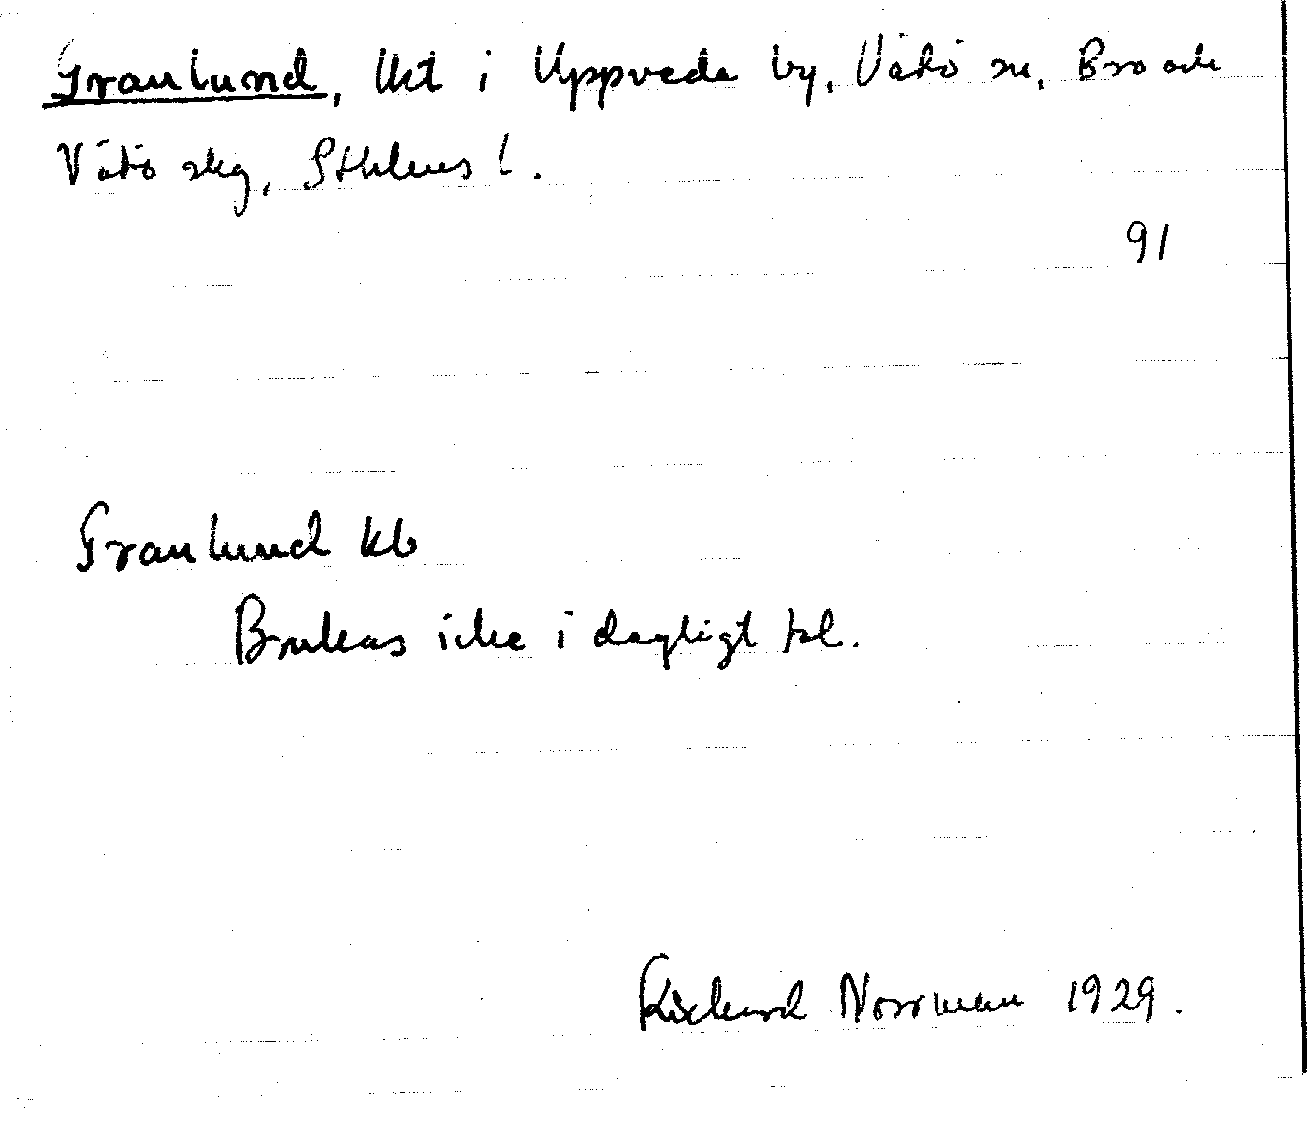 Granlund, lht i Uppveda by, Vätö sn, Bro och
Vätö skg, Sthlms l.
91
Granlund kb
Brukas icke i dagligt tal.
Richard Norrman 1929.